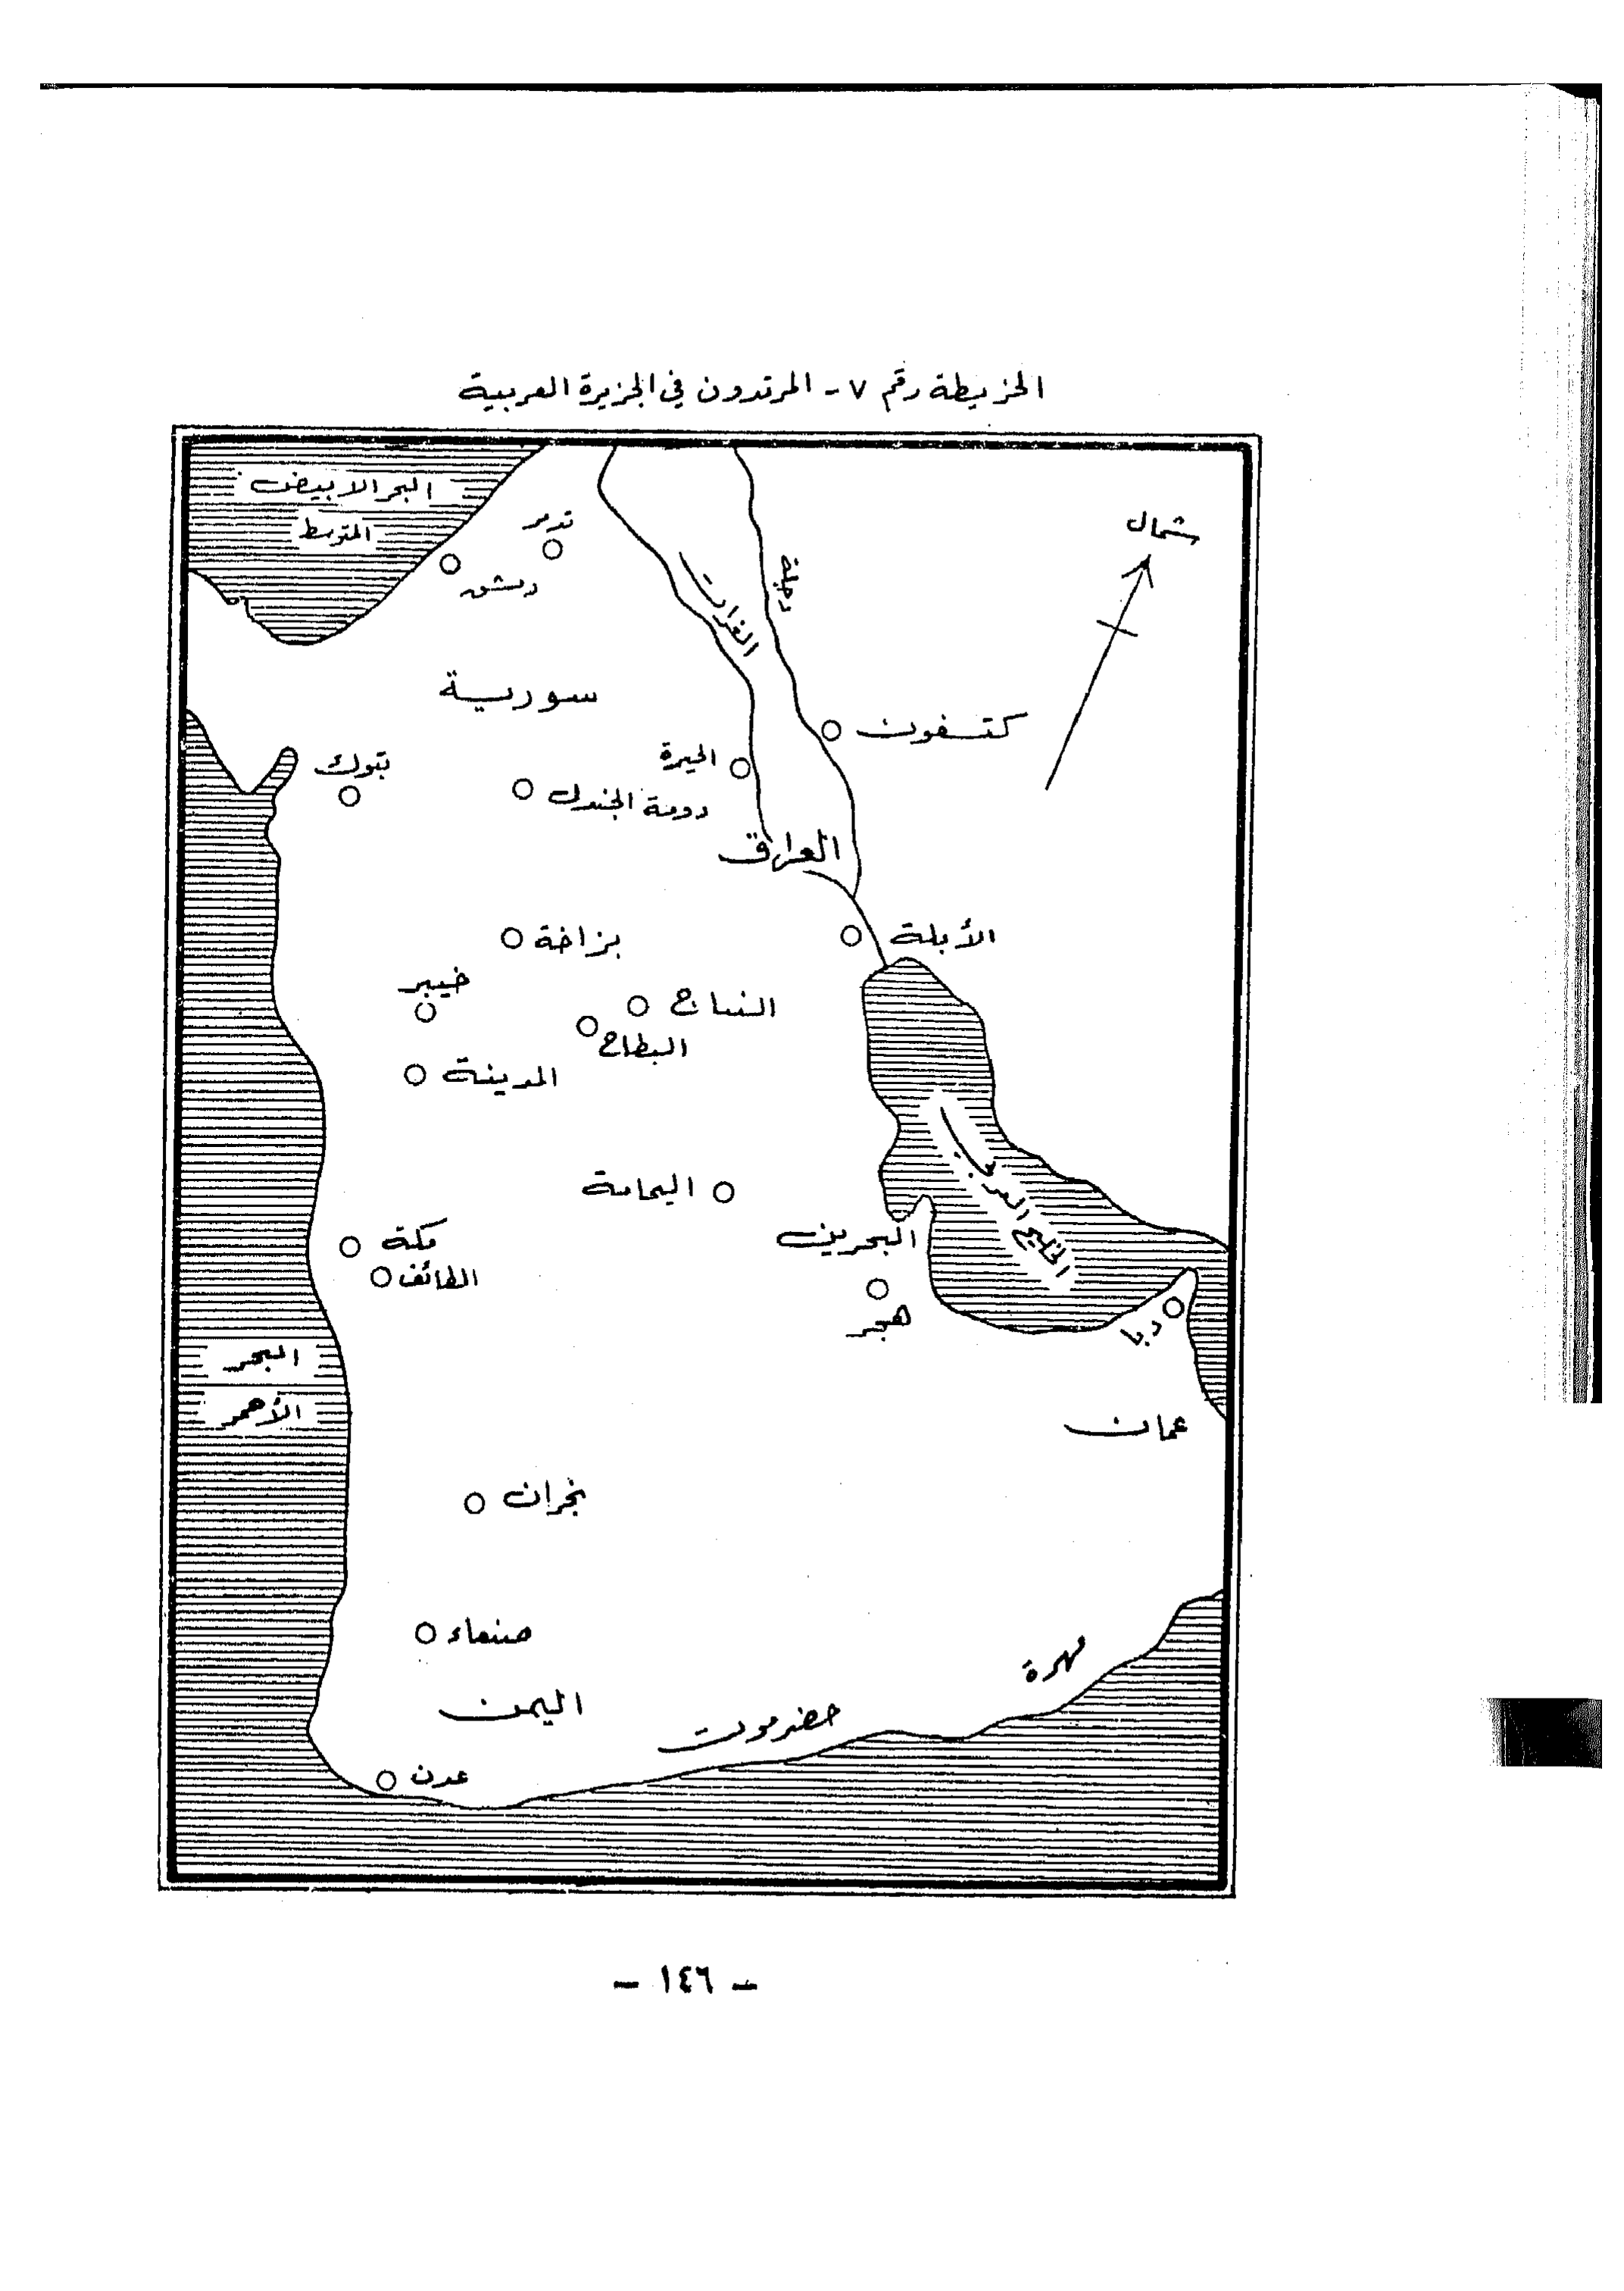 الخريطة رقم ٧ - المرتدون في الجزيرة العربية
البحر الابيض
المتوسط
تدمر
دمشق
شمال
دجلة
الفرات
سورية
كتسفون
الحيرة
تبوك
دومة الجندل
العراق
الأبلة
بزاخة
خيبر
النباج
البطاح
المدينة
الخليج العربي
اليمامة
البحرين
مكة
الطائف
هجر
دبا
البحر
الأحمر
عمان
نجران
صنعاء
مهرة
اليمن
حضرموت
عدن
- ١٤٦ -